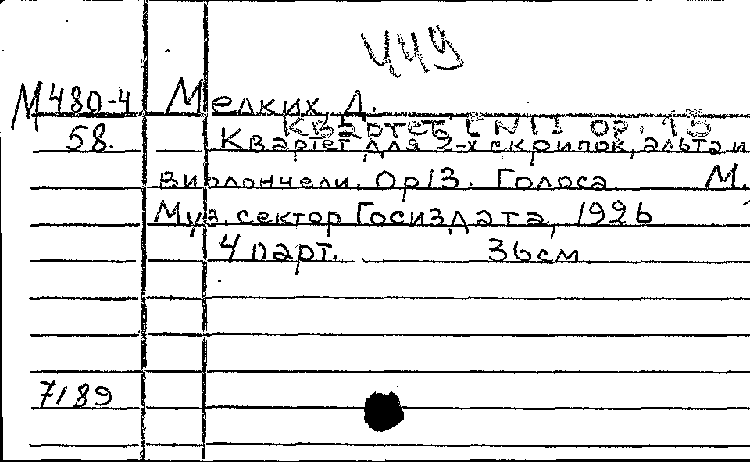 ЧЧУ
М480-4 Мелких, Д.
[Квартет N II ор. 15
58. Квартет для 2-х скрипок, альта и
виолончели. Ор13. Голоса М.
Муз. сектор Госиздата, 1926
4 парт. 36см.
7189